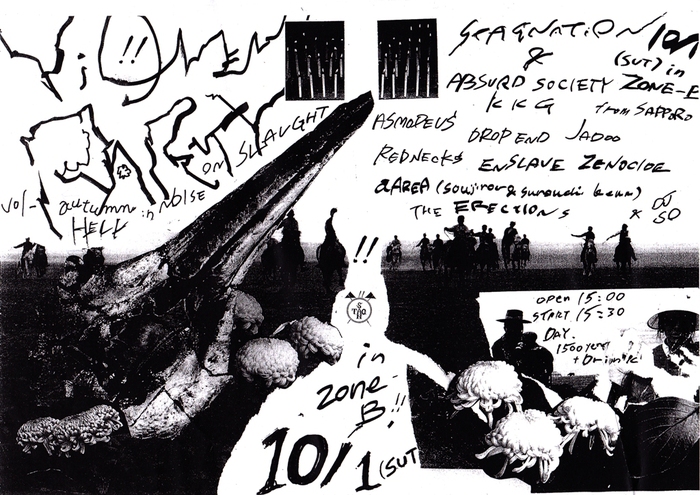 ViOLENt
!!
PARTY
ON SLAUGHT
vol-
autumn in NOISE
HELL
STAGNATION
&
10/1
(SUT) in
ZONE-B
ABSURD SOCIETY
KKG
from SAPPORO
ASMODEUS
DROP END JADOO
REDNECKS ENSLAVE ZENOCIDE
aAREA
THE ERECTIONS
x DJ
SO
!!
STAG
in
zone-
B!!
10/1 (SUT
OPEN 15:00
START 15:30
DAY.
1500yen
+ Drink